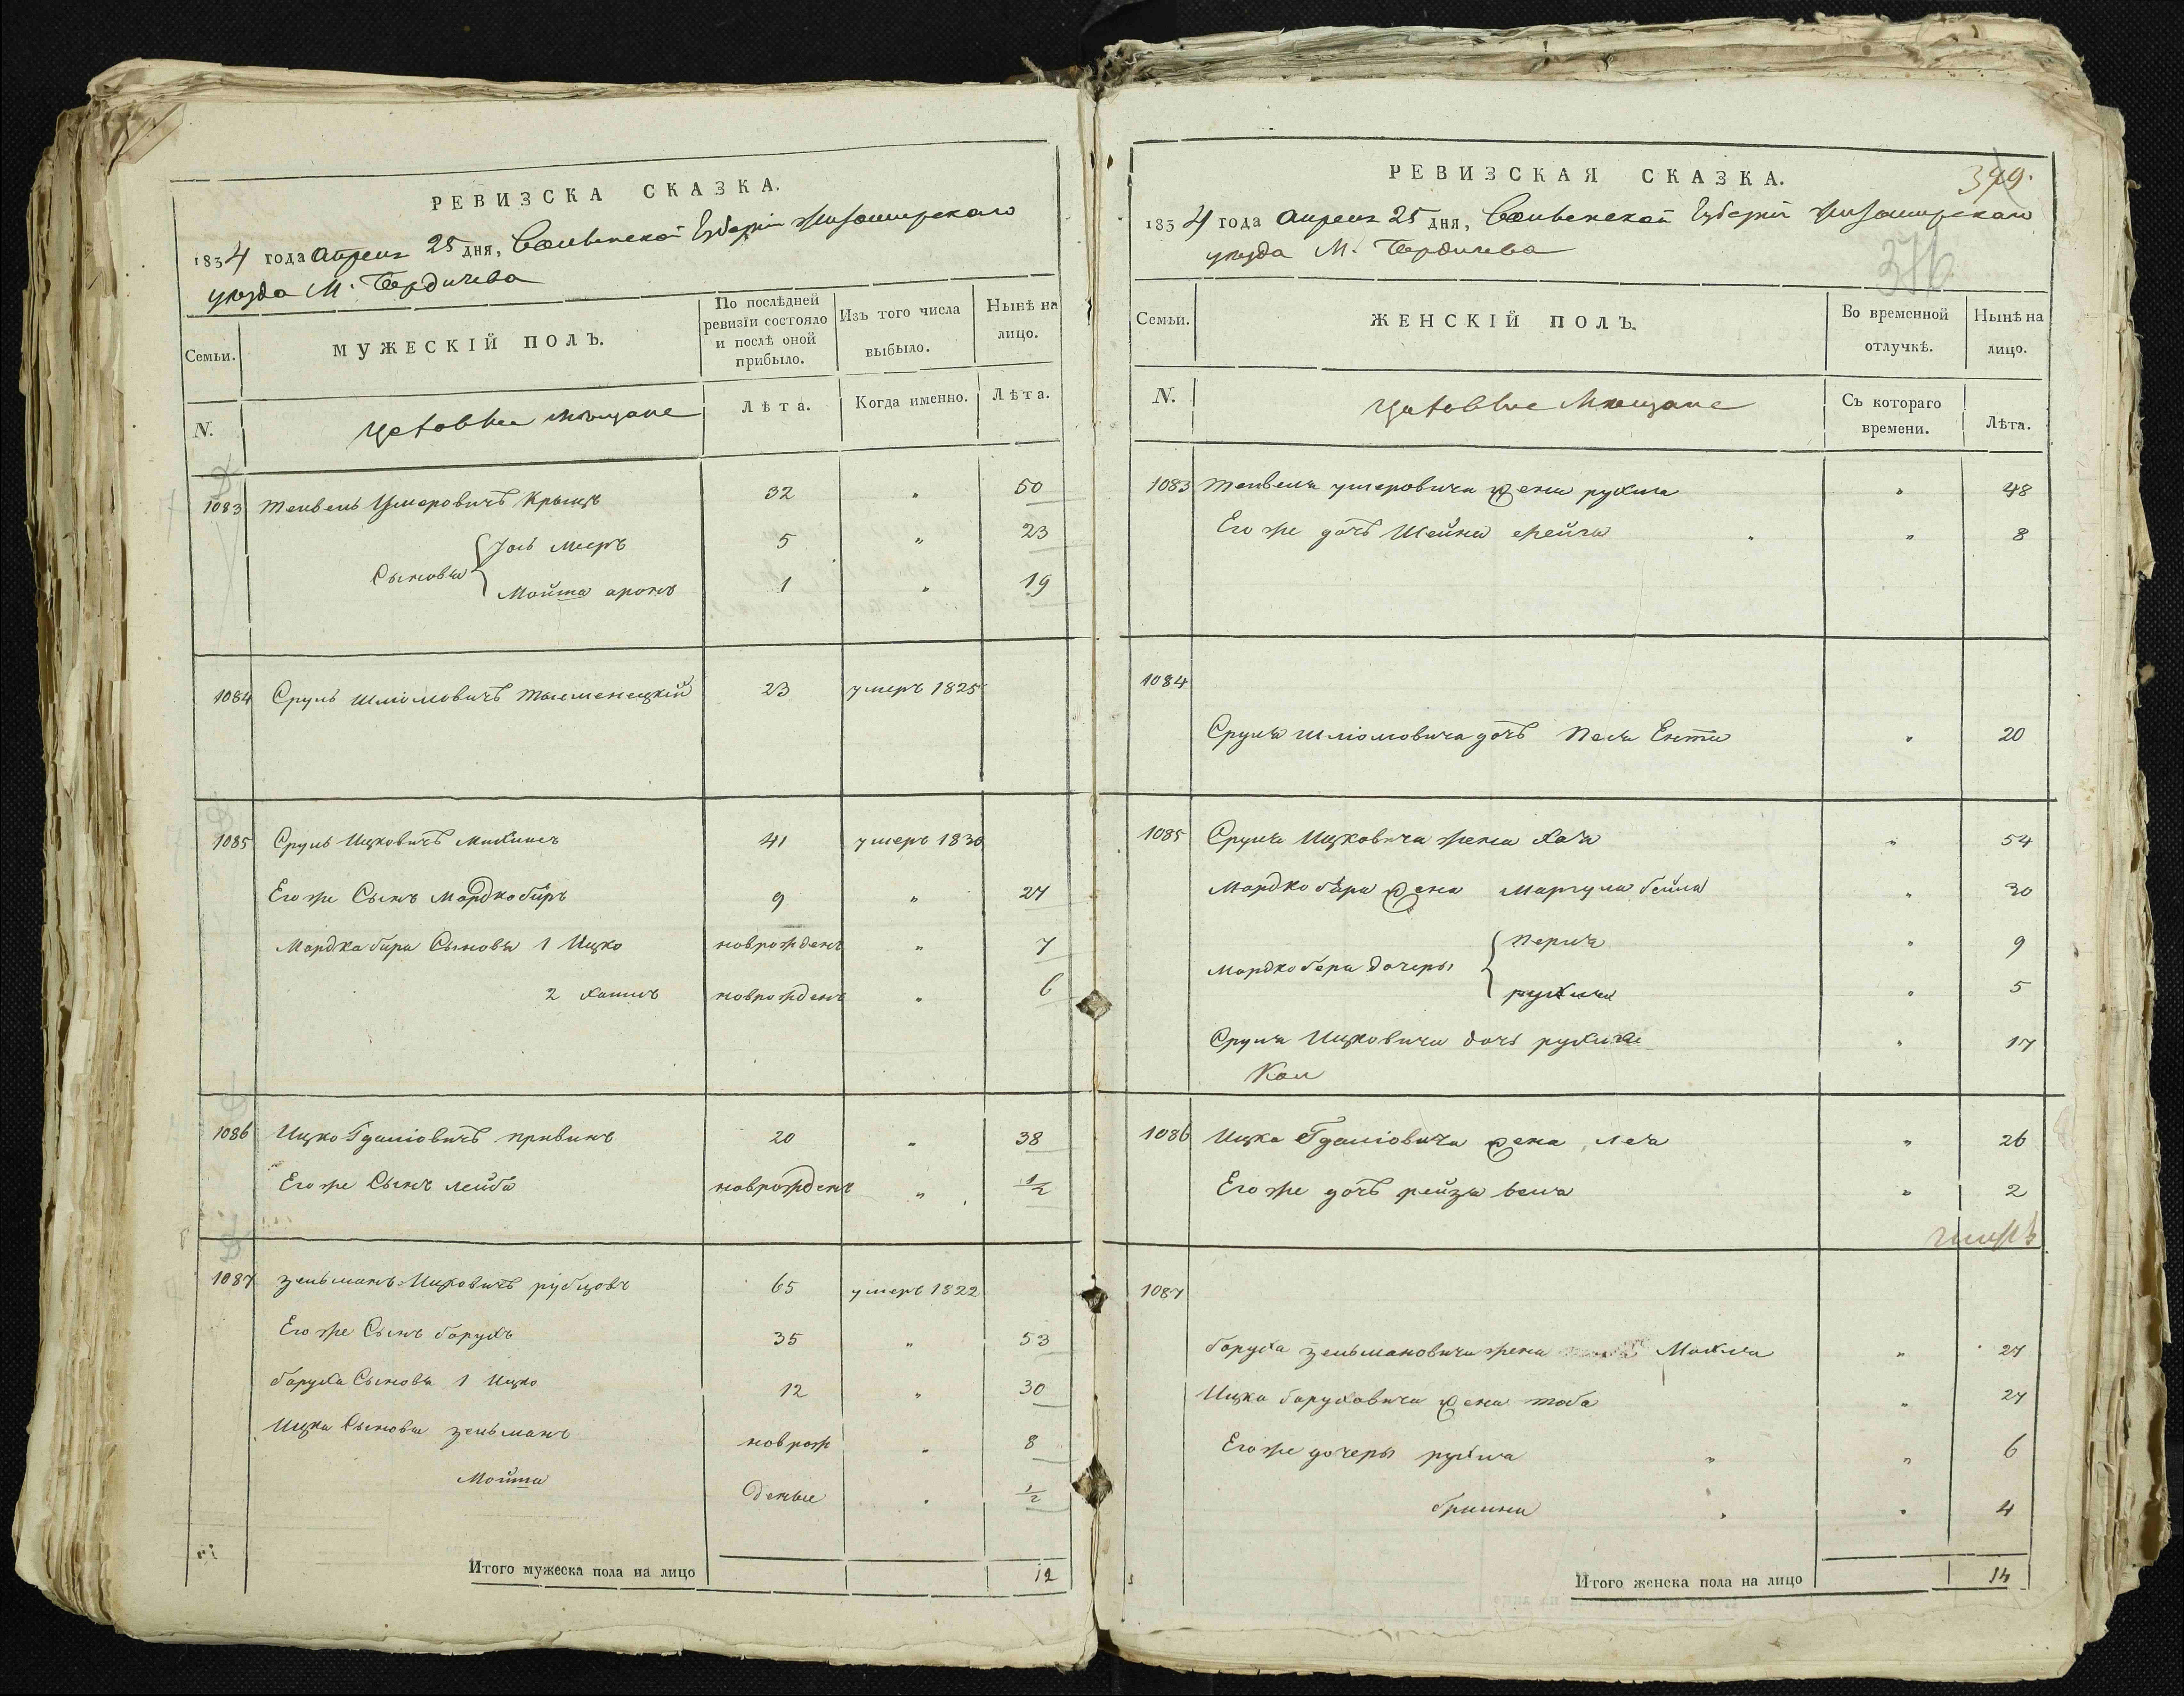 РЕВИЗСКА СКАЗКА.
1834 года Апреля 25 дня, Волынской Губерніи Житомирскаго
уезда М. Бердичева
Семьи.
МУЖЕСКІЙ ПОЛЪ.
По послѣдней
ревизіи состояло
и послѣ оной
прибыло.
Изъ того числа
выбыло.
Нынѣ на
лицо.
N.
мещане
Лѣта.
Когда именно.
Лѣта.
1083 Тевель Умеровичъ Крымъ 32 " 50
Сыновья
Іось Мееръ 5 " 23
Мойша аронъ 1 " 19
1084 Сруль Шліомовичъ Тысменецкій 23 умеръ 1825
1085 Сруль Ицковичъ 41 умеръ 1830
Его же Сынъ Мордко биръ 9 " 27
Мордка бира Сыновья 1 Ицко новорожденъ " 7
2 новорожденъ " 6
1086 Ицко Гдаліовичъ 20 " 38
Его же Сынъ лейба новрожденъ " 1/2
1087 зельманъ Ицковичъ рубцовъ 65 умеръ 1822
Его же Сынъ барухъ 35 " 53
баруха Сыновья 1 Ицко 12 " 30
Ицка Сыновья зельманъ новрож " 8
Мойша денные " 1/2
Итого мужеска пола на лицо 12
РЕВИЗСКАЯ СКАЗКА.
1834 года Апреля 25 дня, Волынской Губерніи Житомирскаго
уезда М. Бердичева
Семьи.
ЖЕНСКІЙ ПОЛЪ.
Во временной
отлучкѣ.
Нынѣ на
лицо.
N.
Мещане
Съ котораго
времени.
Лѣта.
1083 Тевеля умеровича жена рухля " 48
Его же дочь Шейна " 8
1084
Сруля Шліомовича дочь Песя Ента " 20
1085 Сруля Ицковича жена хая " 54
Мордко бира жена Маргуля бейла " 30
Мордко бера дочеры
перля " 9
рухля " 5
Сруля Ицковича дочь рухля " 17
1086 Ицка Гдаліовича жена лея " 26
Его же дочь рейзя " 2
1087
баруха зельмановича жена Махля " 27
Ицка баруховича жена тоба " 27
Его же дочеры рухля " 6
" 4
Итого женска пола на лицо 14